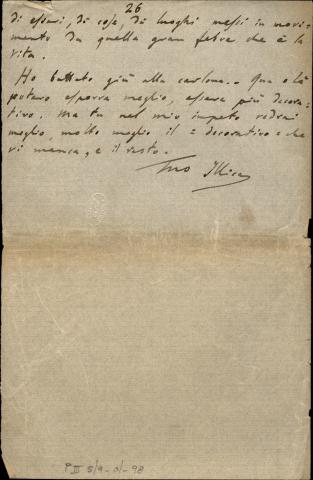 26
di esseri, di cose, di luoghi messi in movi-
mento da quella gran febre che è la
vita.
Ho buttato giù alla carlona.. Qua e là
potevo esporre meglio, essere più decora-
tivo. Ma tu nel mio impeto vedrai
meglio, molto meglio il = decorativo = che
vi manca, e il resto.
Tuo Illica